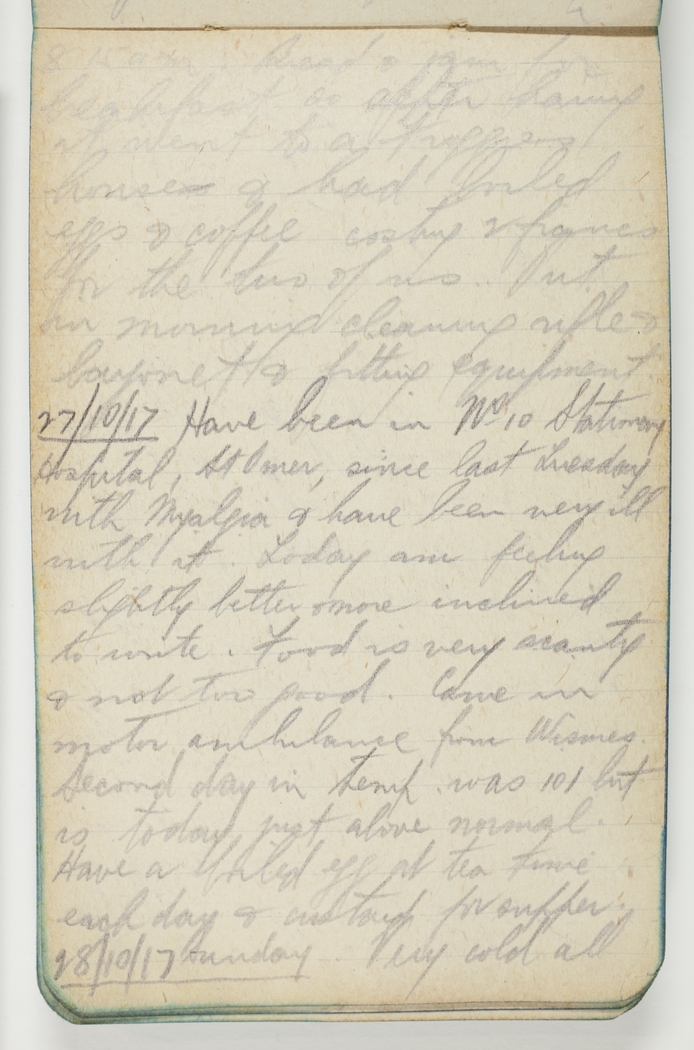 8 15 am. Bread & jam for
breakfast so after having
it went to a froggies
house & had boiled
eggs & coffee costing 2 francs
for the two of us. Put
in morning cleaning rifle &
bayonet & fitting equipment.
27/10/17 Have been in No 10 Stationary
Hospital, St Omer, since last Tuesday
with Myalgia & have been very ill
with it. Today am feeling
slightly better & more inclined
to write. Food is very scanty
& not too good. Came in
motor ambulance from Wismes.
Second day in temp. was 101 but
is today just above normal.
Have a boiled egg at tea time
each day & custard for supper.
28/10/17 Sunday. Very cold all